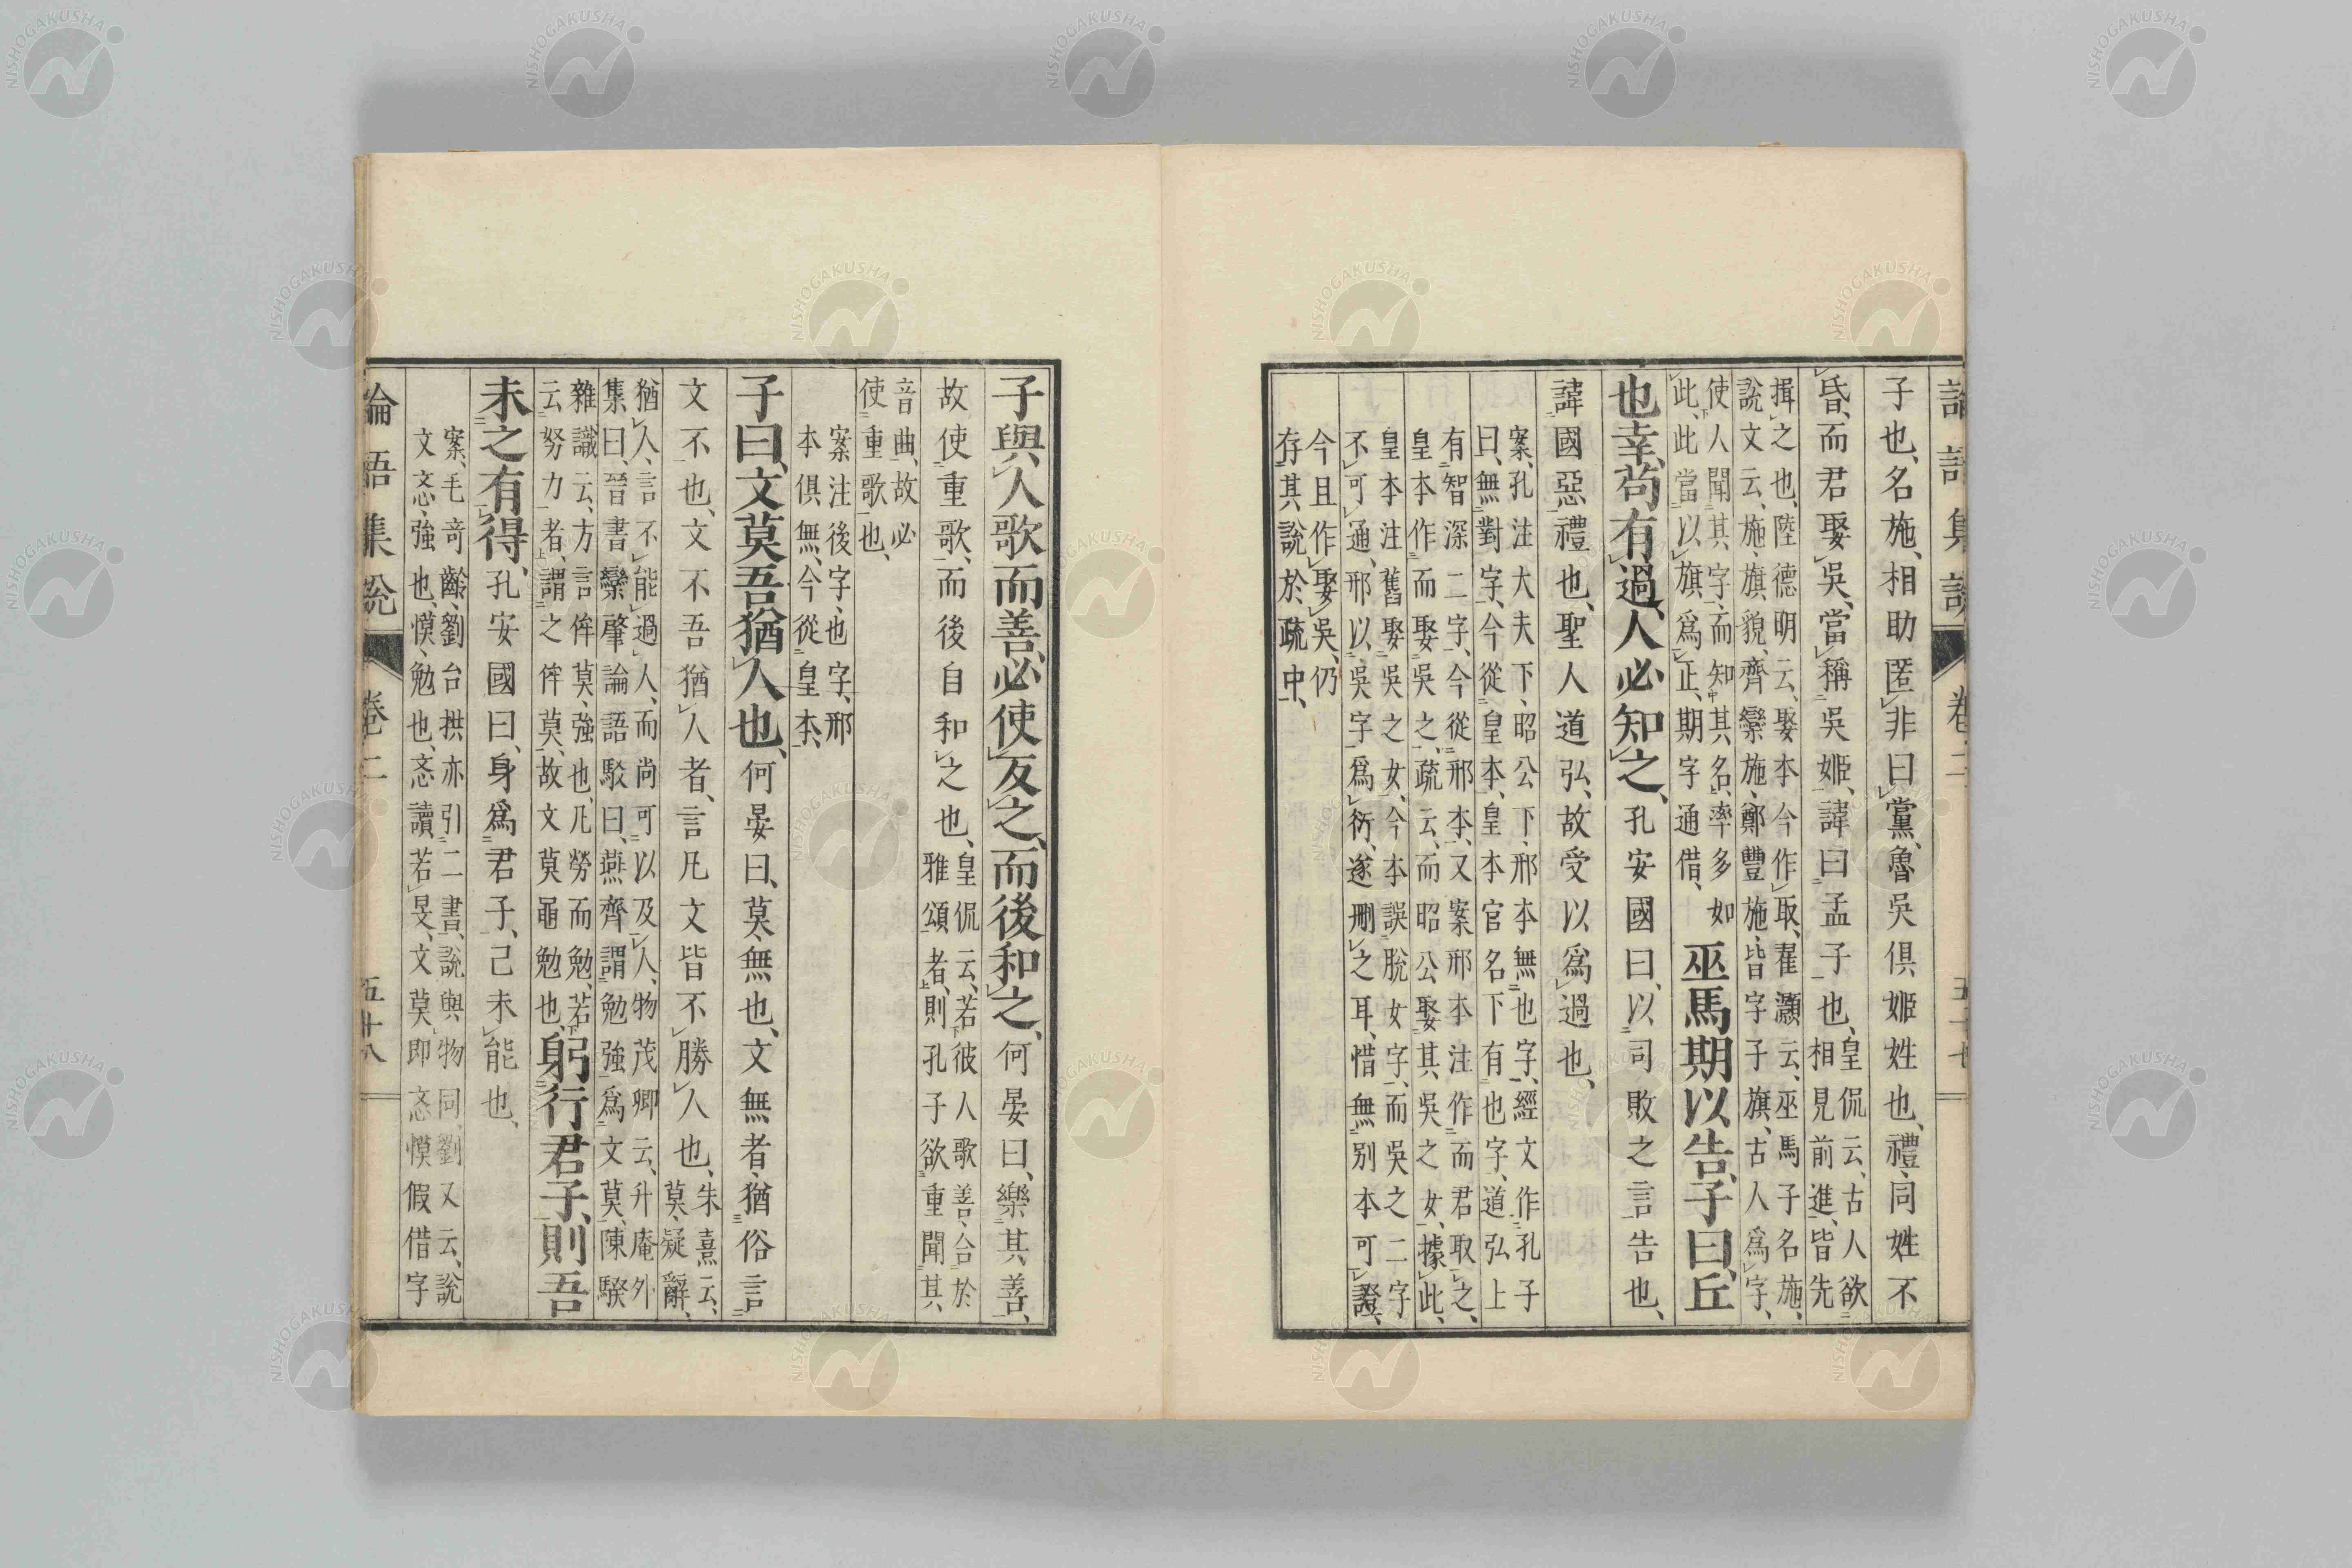 論語集說 卷二 五十七
子也、名施、相助匿非曰黨、魯吳俱姬姓也、禮、同姓不
昏、而君娶吳、當稱吳姬、諱曰孟子也、皇侃云、古人欲
相見前進、皆先
揖之也、陸德明云、娶本今作取、翟灝云、巫馬子名施、
說文云、施、旗貌、齊欒施、鄭豐施、皆字子旗、古人爲字、
使人聞其字、而知其名、率多如
此、此當以旗爲正、期字通借、
巫馬期以告、子曰、丘
也幸、苟有過、人必知之、孔安國曰、以司敗之言告也、
諱國惡禮也、聖人道弘、故受以爲過也、
案、孔注大夫下、昭公下、邢本無也字、經文作孔子
曰、無對字、今從皇本、皇本官名下有也字、道弘上
有智深二字、今從邢本、又案邢本注作而君取之、
皇本作而娶吳之、疏云、而昭公娶其吳之女、據此、
皇本注舊娶吳之女、今本誤脫女字、而吳之二字
不可通、邢以吳字爲衍、遂刪之耳、惜無別本可證、
今且作娶吳、仍
存其說於疏中、
子與人歌而善、必使反之、而後和之、何晏曰、樂其善、
故使重歌、而後自和之也、皇侃云、若彼人歌善、合於
雅頌者、則孔子欲重聞其
音曲、故必
使重歌也、
案注後字、也字、邢
本俱無、今從皇本、
子曰、文莫吾猶人也、何晏曰、莫、無也、文無者、猶俗言
文不也、文不吾猶人者、言凡文皆不勝人也、朱熹云、
莫、疑辭、
猶人、言不能過人、而尚可以及人、物茂卿云、升庵外
集曰、晉書欒肇論語駁曰、燕齊謂勉強爲文莫、陳騤
雜識云、方言侔莫、強也、凡勞而勉、若
云努力者、謂之侔莫、故文莫黽勉也、
躬行君子、則吾
未之有得、孔安國曰、身爲君子、己未能也、
案、毛奇齡、劉台拱亦引二書、說與物同、劉又云、說
文忞、強也、慔、勉也、忞讀若旻、文莫即忞慔假借字
論語集說 卷二 五十八